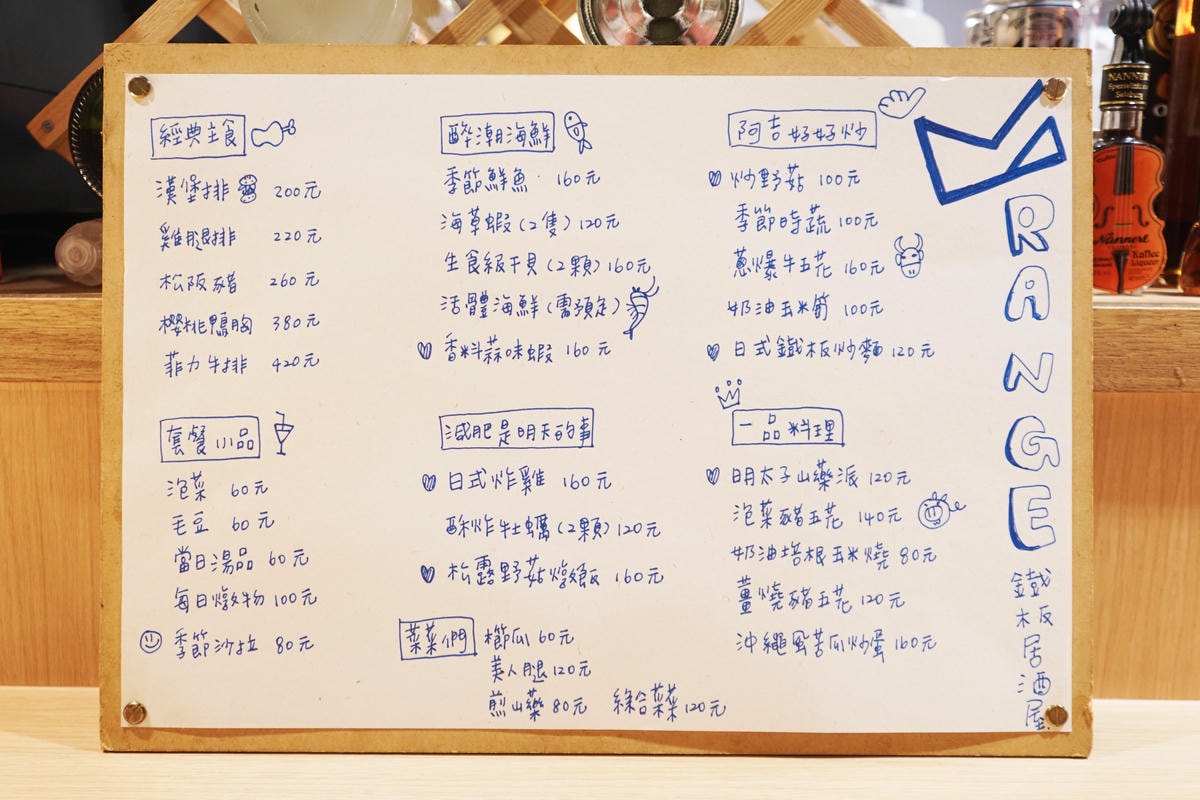 經典主食
漢堡排 200元
雞腿排 220元
松阪豬 260元
櫻桃鴨胸 380元
菲力牛排 420元
套餐小品
泡菜 60元
毛豆 60元
當日湯品 60元
每日燉物 100元
季節沙拉 80元
醉潮海鮮
季節鮮魚 160元
海草蝦(2隻) 120元
生食級干貝(2顆) 160元
活體海鮮(需預定)
香料蒜味蝦 160元
減肥是明天的事
日式炸雞 160元
酥炸牡蠣(2顆) 120元
松露野菇燉飯 160元
菜菜們 櫛瓜 60元
美人腿 120元
煎山藥 80元 綜合菜菜 120元
阿吉好好炒
炒野菇 100元
季節時蔬 100元
蔥爆牛五花 160元
奶油玉米筍 100元
日式鐵板炒麵 120元
一品料理
明太子山藥派 120元
泡菜豬五花 140元
奶油培根玉米燒 80元
薑燒豬五花 120元
沖繩風苦瓜炒蛋 160元
RANGE
鐵板居酒屋
NANNER
Nannerl
Kaffee
Liqueur